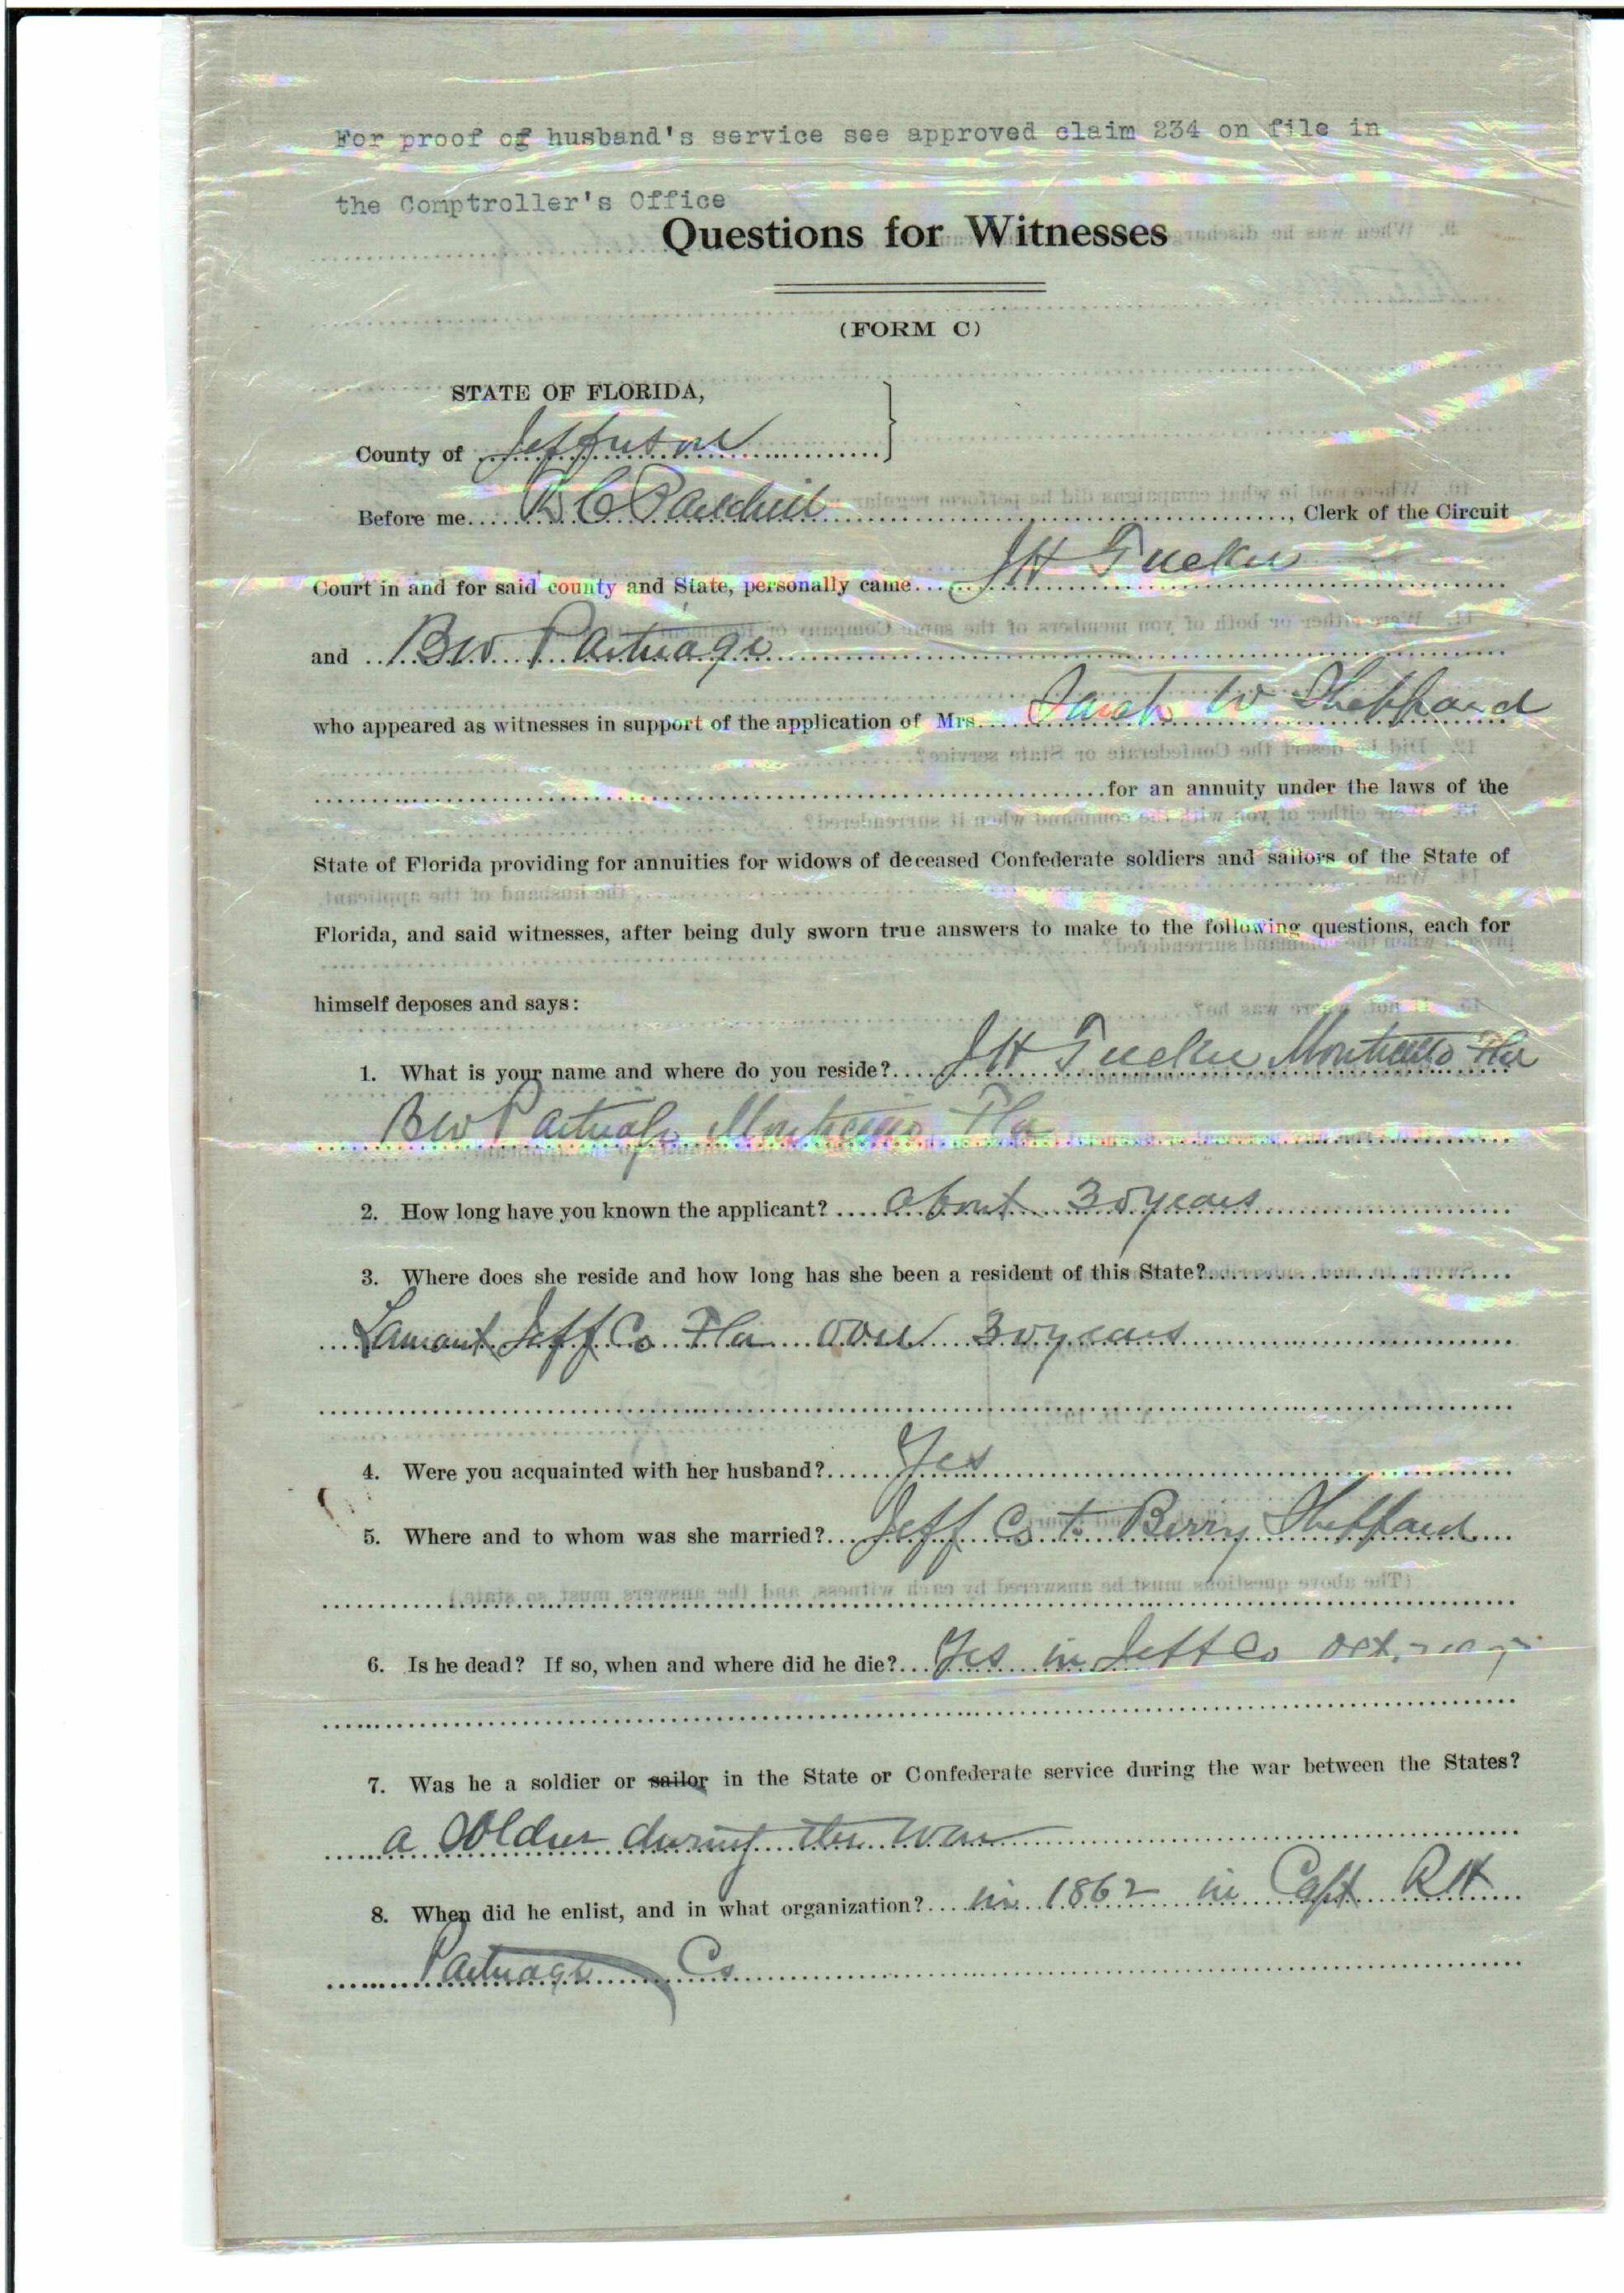 For proof of husband's service see approved claim 234 on file in
the Comptroller's Office
Questions for Witnesses
(FORM C)
STATE OF FLORIDA,
County of Jefferson
Before me B C , Clerk of the Circuit
Court in and for said county and State, personally came J H Tucker
and B W Partridge
who appeared as witnesses in support of the application of Mrs. Sarah W Sheppard
for an annuity under the laws of the
State of Florida providing for annuities for widows of deceased Confederate soldiers and sailors of the State of
Florida, and said witnesses, after being duly sworn true answers to make to the following questions, each for
himself deposes and says:
1. What is your name and where do you reside? J H Tucker Monticello Fla
B W Partridge Monticello Fla
2. How long have you known the applicant? about 30 years
3. Where does she reside and how long has she been a resident of this State?
Lamont Jeff Co Fla over 30 years
4. Were you acquainted with her husband? Yes
5. Where and to whom was she married? Jeff Co to Berry Sheppard
6. Is he dead? If so, when and where did he die? Yes in Jeff Co Oct.
7. Was he a soldier or sailor in the State or Confederate service during the war between the States?
a Soldier during the War
8. When did he enlist, and in what organization? in 1862 in Capt R H
Partridge Co